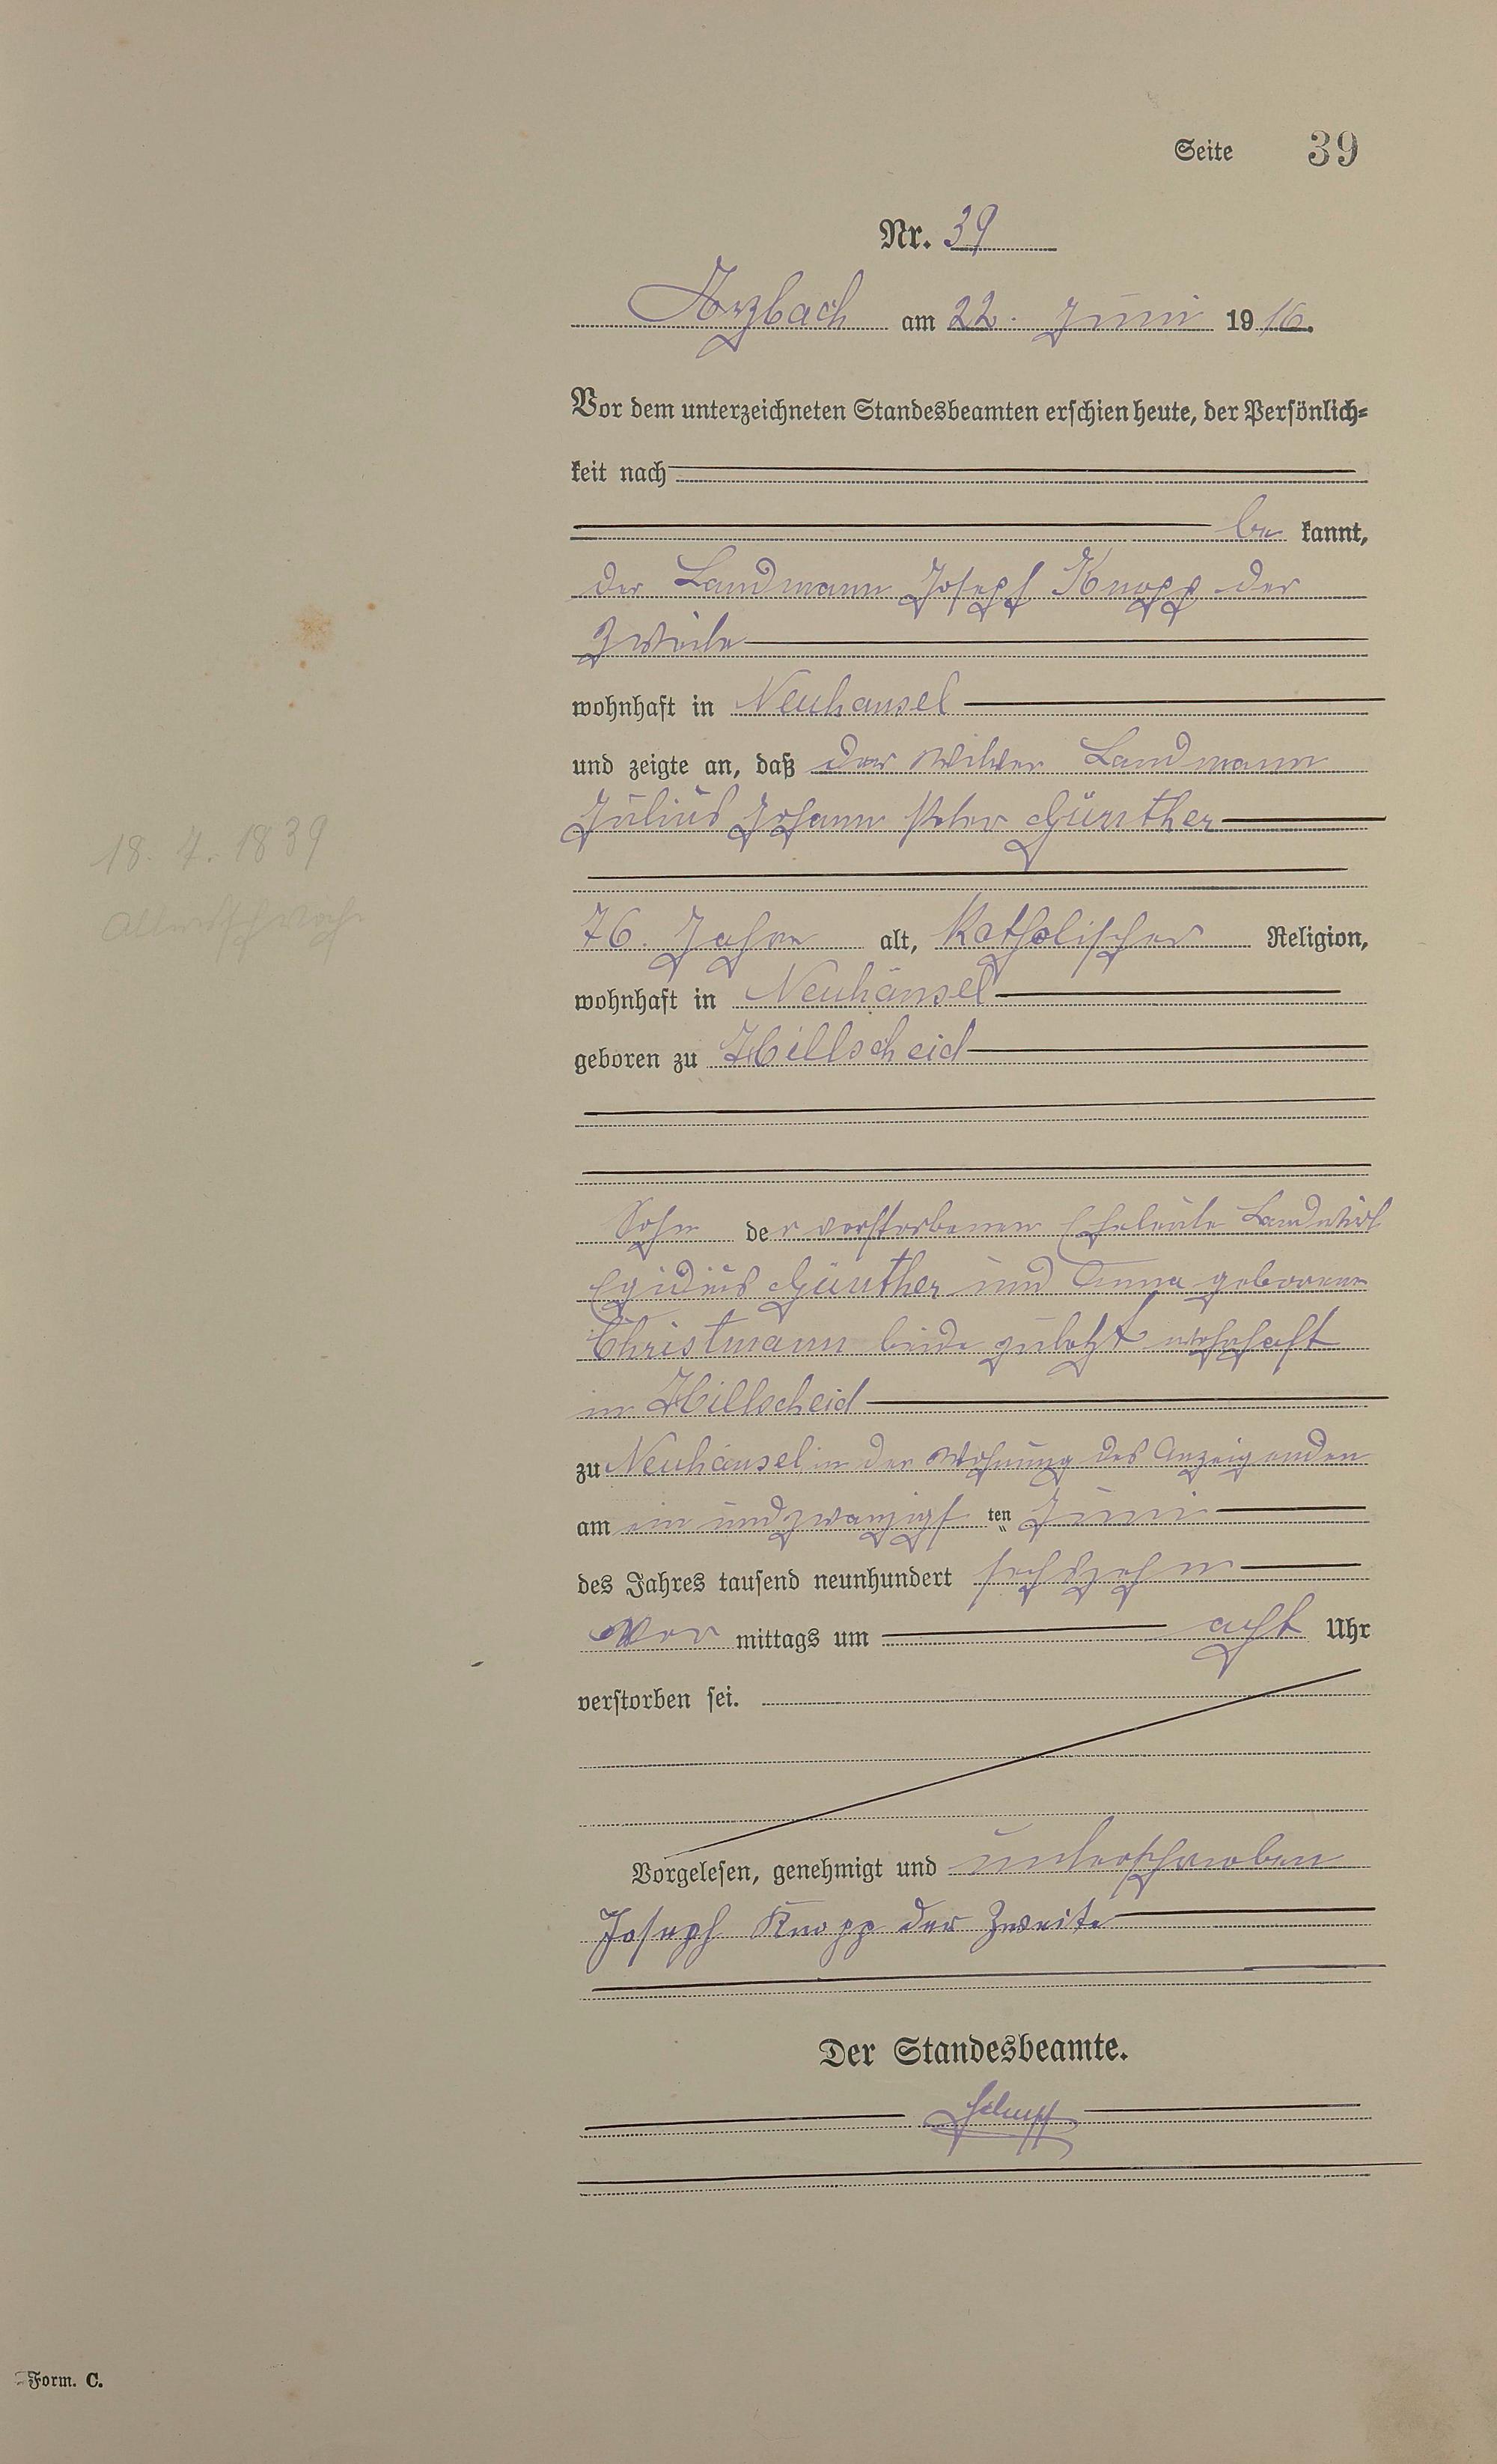 Seite 39
Nr. 39
Arzbach am 22. Juni 1916.
Vor dem unterzeichneten Standesbeamten erschien heute, der Persönlich=
keit nach
be kannt,
der Landmann Joseph Knopp der
Zweite
wohnhaft in Neuhäusel
und zeigte an, daß der Landmann
Julius Johann Peter Günther
18. 7. 1839
Altersschwäche
76. Jahre alt, Katholischer Religion,
wohnhaft in Neuhäusel
geboren zu Hillscheid
Sohn der verstorbenen Eheleute Landwirt
Egidius Günther und Anna geborene
Christmann beide zuletzt wohnhaft
in Hillscheid
zu Neuhäusel in der Wohnung des Anzeigenden
am ein und zwanzigsten Juni
des Jahres tausend neunhundert sechszehn
Vor mittags um acht Uhr
verstorben sei.
Vorgelesen, genehmigt und unterschrieben
Joseph Knopp der Zweite
Der Standesbeamte.
Form. C.